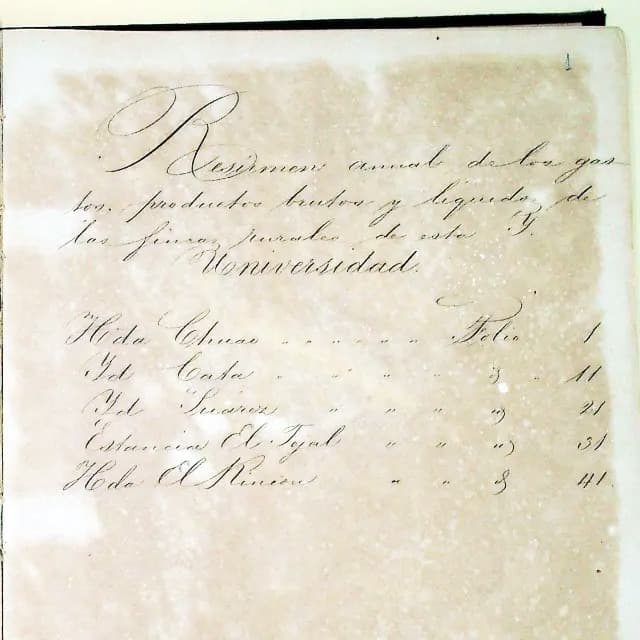 1
Resúmen anual de los gas
tos, productos brutos y líquidos de
las fincas rurales de esta Y.
Universidad.
Hda Chuao " " " " " " Folio 1
Yd Cata " " " " " 11
Yd Suárez " " " " 21
Estancia El Tejal " " " " 31
Hda El Rincon " " " 41.